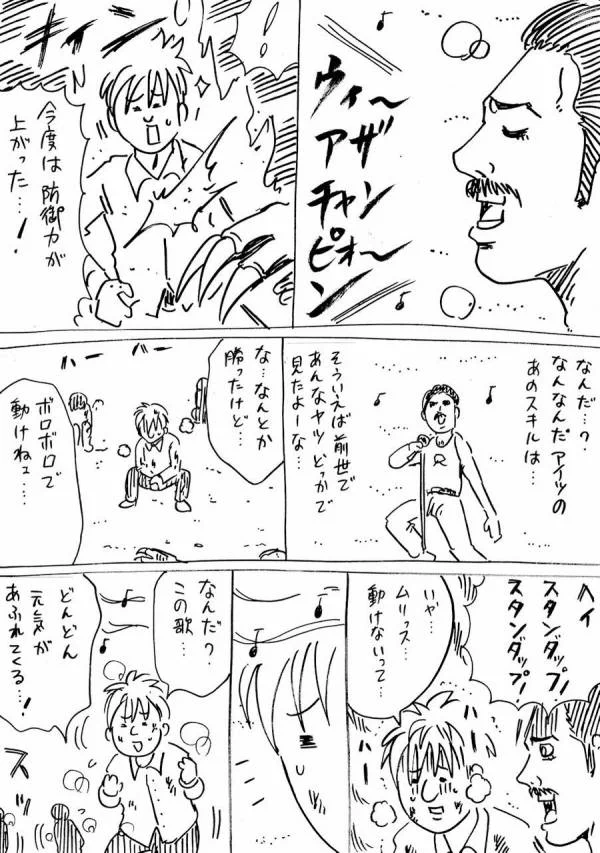 ウィ〜
アザ
チャンピオ〜ン
キィン
今度は防御力が
上がった…！
なんだ…？
なんなんだアイツの
あのスキルは…
そういえば前世で
あんなヤツどっかで
見たよーな…
な…なんとか
勝ったけど…
ハーハー
ボロボロで
動けねェ…
ヘイ
スタンダップ!
スタンダップ!
いや…
ムリっス
動けないって…
なんだ？
この歌…
どんどん
元気が
あふれてくる…！